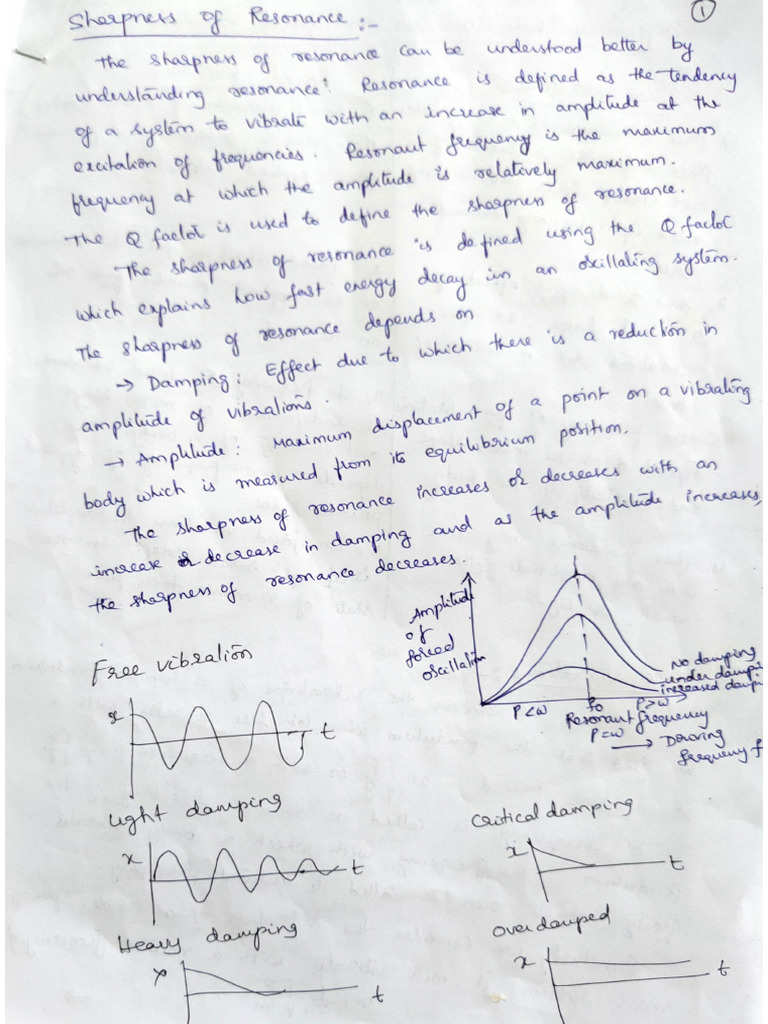 Sharpness of Resonance :-
1
The sharpness of resonance can be understood better by
understanding resonance. Resonance is defined as the tendency
of a system to vibrate with an increase in amplitude at the
excitation of frequencies. Resonant frequency is the maximum
frequency at which the amplitude is relatively maximum.
The Q factor is used to define the sharpness of resonance.
The sharpness of resonance is defined using the Q factor
which explains how fast energy decay in an oscillating system.
The sharpness of resonance depends on
→ Damping: Effect due to which there is a reduction in
amplitude of vibrations.
→ Amplitude: Maximum displacement of a point on a vibrating
body which is measured from its equilibrium position.
The sharpness of resonance increases or decreases with an
increase or decrease in damping and as the amplitude increases,
the sharpness of resonance decreases.
Amplitude
of
forced
oscillation
No damping
under dampi
increased dampi
P<ω f₀ P>ω
Resonant frequency
P=ω
→ Driving
frequency f
Free vibration
x
t
Light damping
x
t
Critical damping
x
t
Heavy damping
x
t
Overdamped
x
t